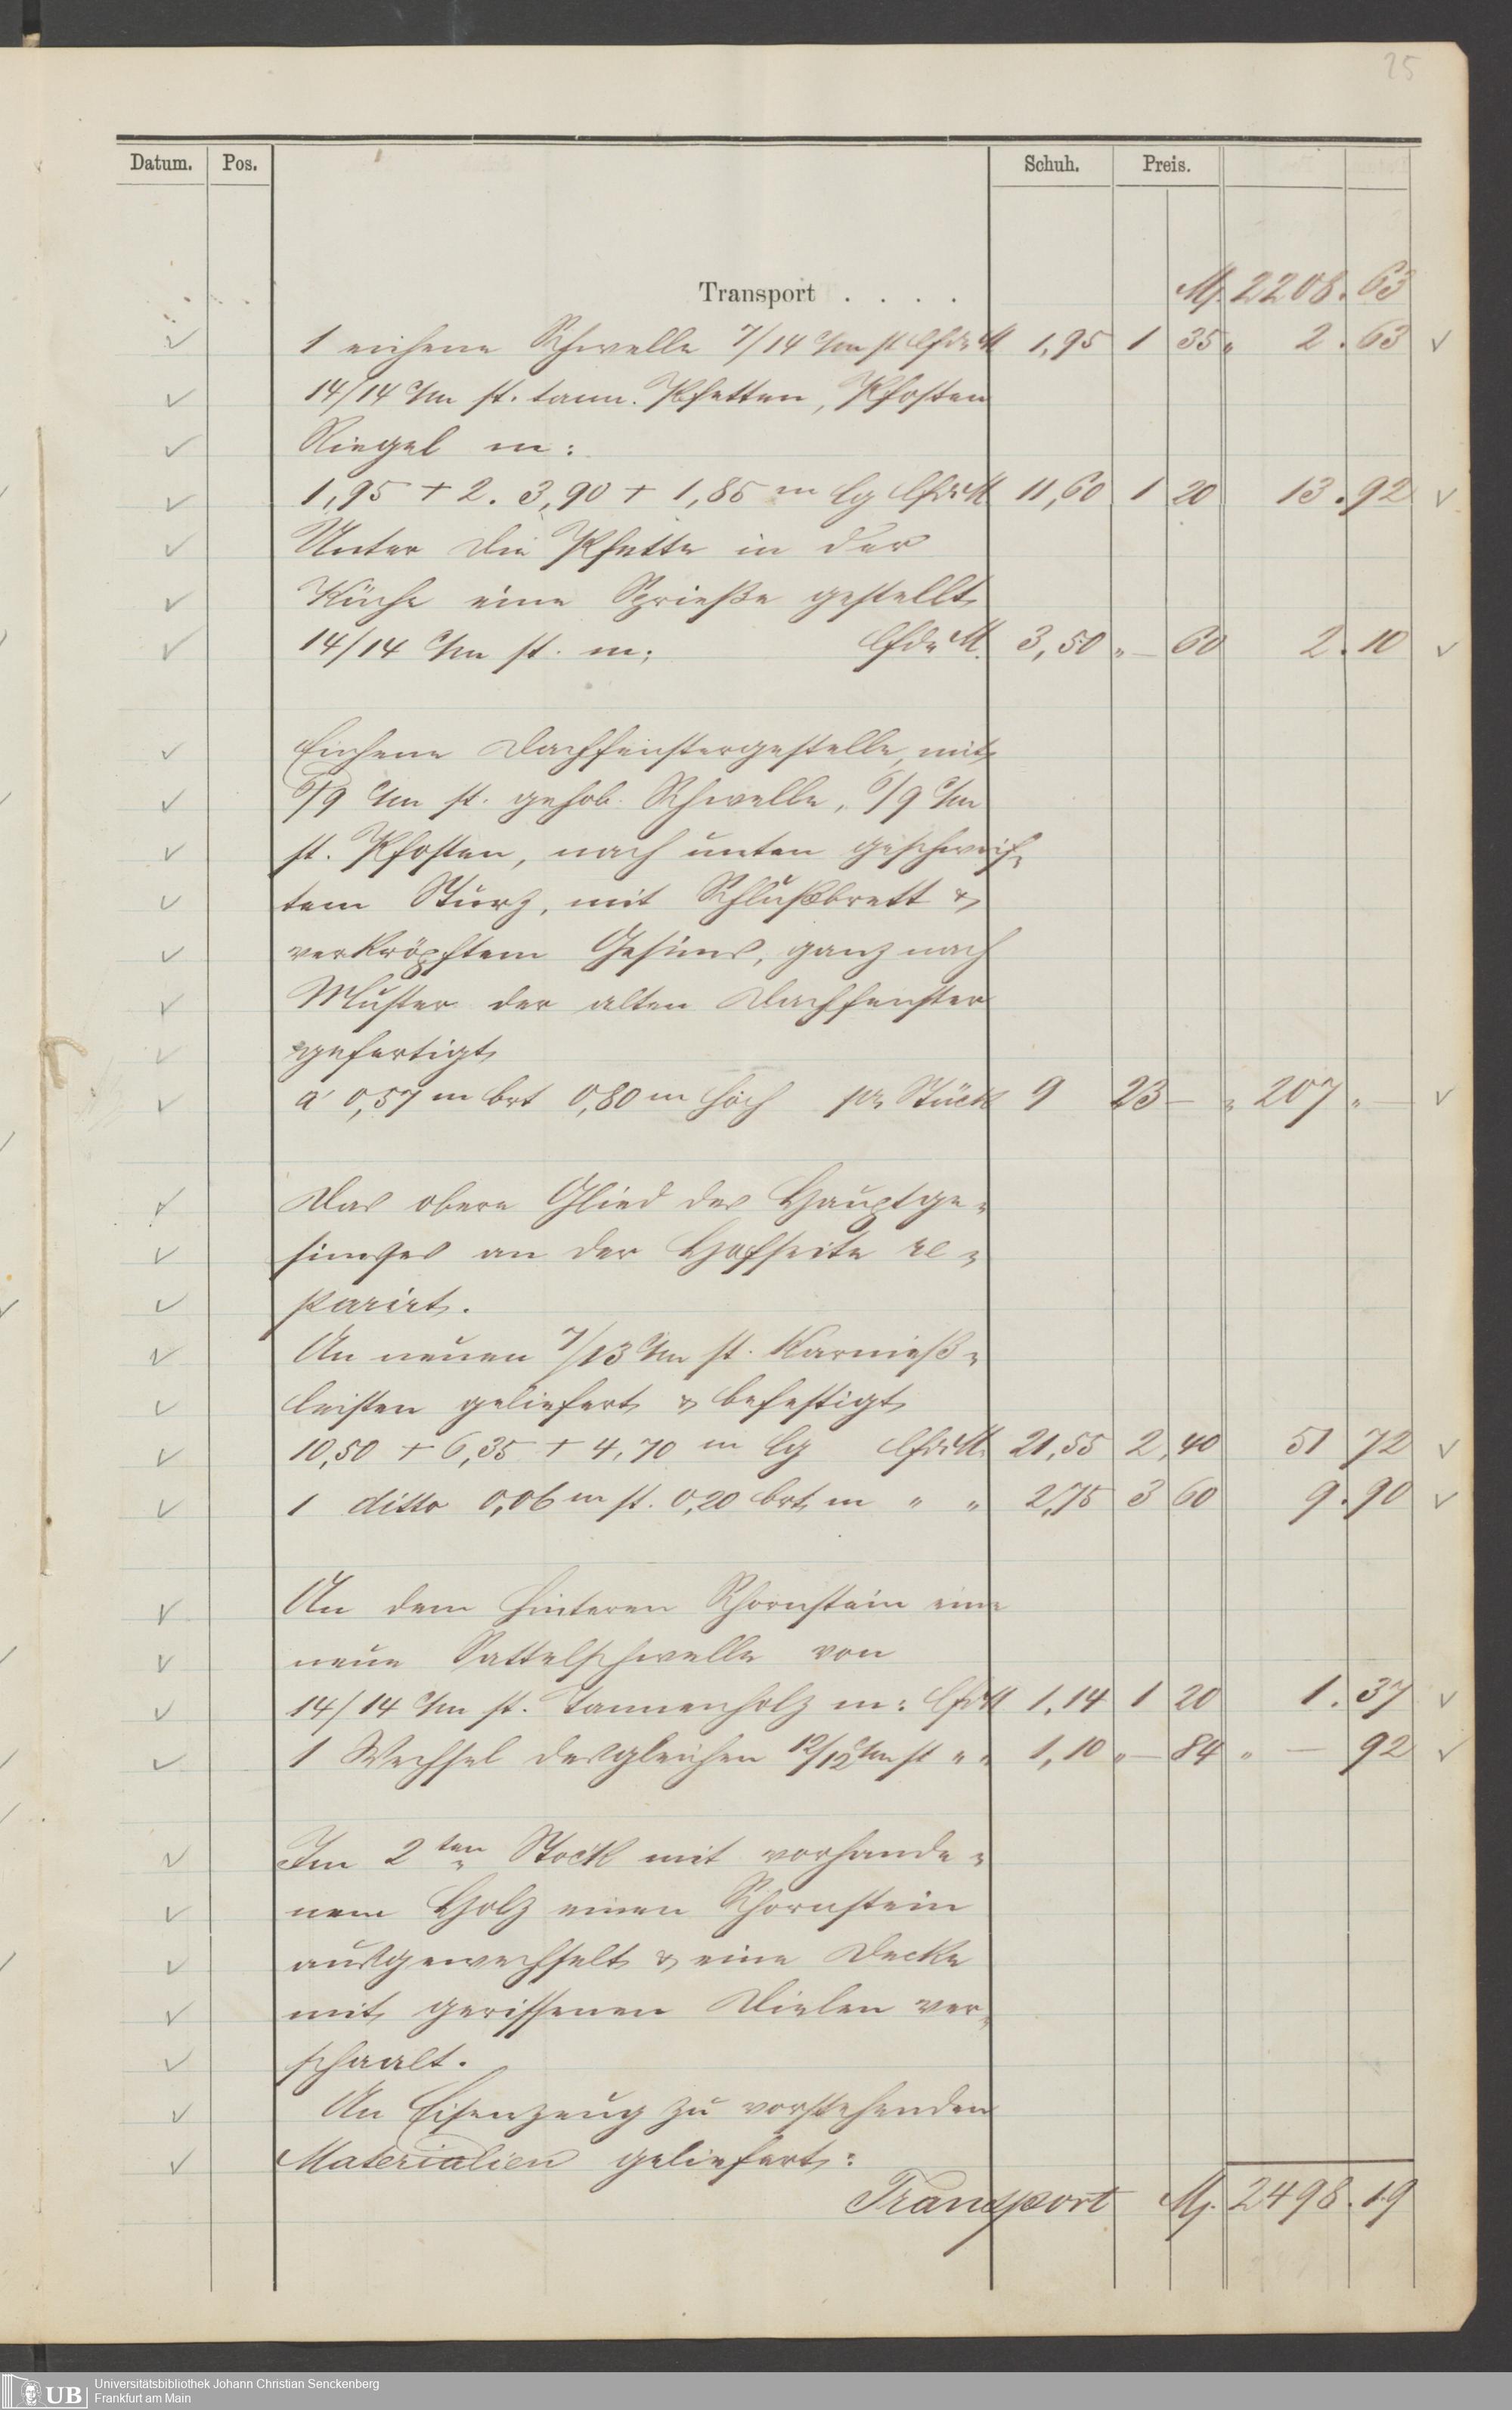 25
Datum. Pos. Schuh. Preis.
Transport . . . . M. 2208. 63
1 eichene Schwelle 7/14 c/m st lfdr M 1,95 1 35 „ 2. 63
14/14 c/m st. tann. Pfetten, Pfosten
Riegel m:
1,95 + 2. 3,90 + 1,85 m lg lfdr M 11,60 1 20 13. 92
Unter die Pfette in der
Küche eine Sprieße gestellt
14/14 c/m st. m: lfdr M. 3,50 „ — 60 2. 10
Eichene Dachfenstergestelle, mit
6/9 c/m st. gehob. Schwelle, 6/9 c/m
st. Pfosten, nach unten geschweif„
tem Sturz, mit Schlußbrett &
verkröpftem Gesims, ganz nach
Muster der alten Dachfenster
gefertigt
a' 0,57 m brt 0,80 m hoch pr Stück 9 23 — „ 207 „ —
Das obere Glied des Hauptge„
simses an der Hofseite re„
parirt.
An neuen 7/13 c/m st. Karnieß„
leisten geliefert & befestigt
10,50 + 6,35 + 4,70 m lg lfdr M. 21,55 2,40 51 72
1 ditto 0,06 m st. 0,20 brt m „ „ 2,75 3 60 9. 90
An dem hinteren Schornstein eine
neue Sattelschwelle von
14/14 c/m st. Tannenholz m: lfdr M 1,14 1 20 1. 37
1 Wechsel desgleichen 12/12 c/m st „ „ 1,10 „ — 84 „ — 92
Im 2ten Stock mit vorhande„
nem Holz einen Schornstein
ausgewechselt & eine Decke
mit gerissenen Dielen ver„
schaalt.
An Eisenzeug zu vorstehenden
Materialien geliefert:
Transport M. 2498. 19
UB Universitätsbibliothek Johann Christian Senckenberg
Frankfurt am Main